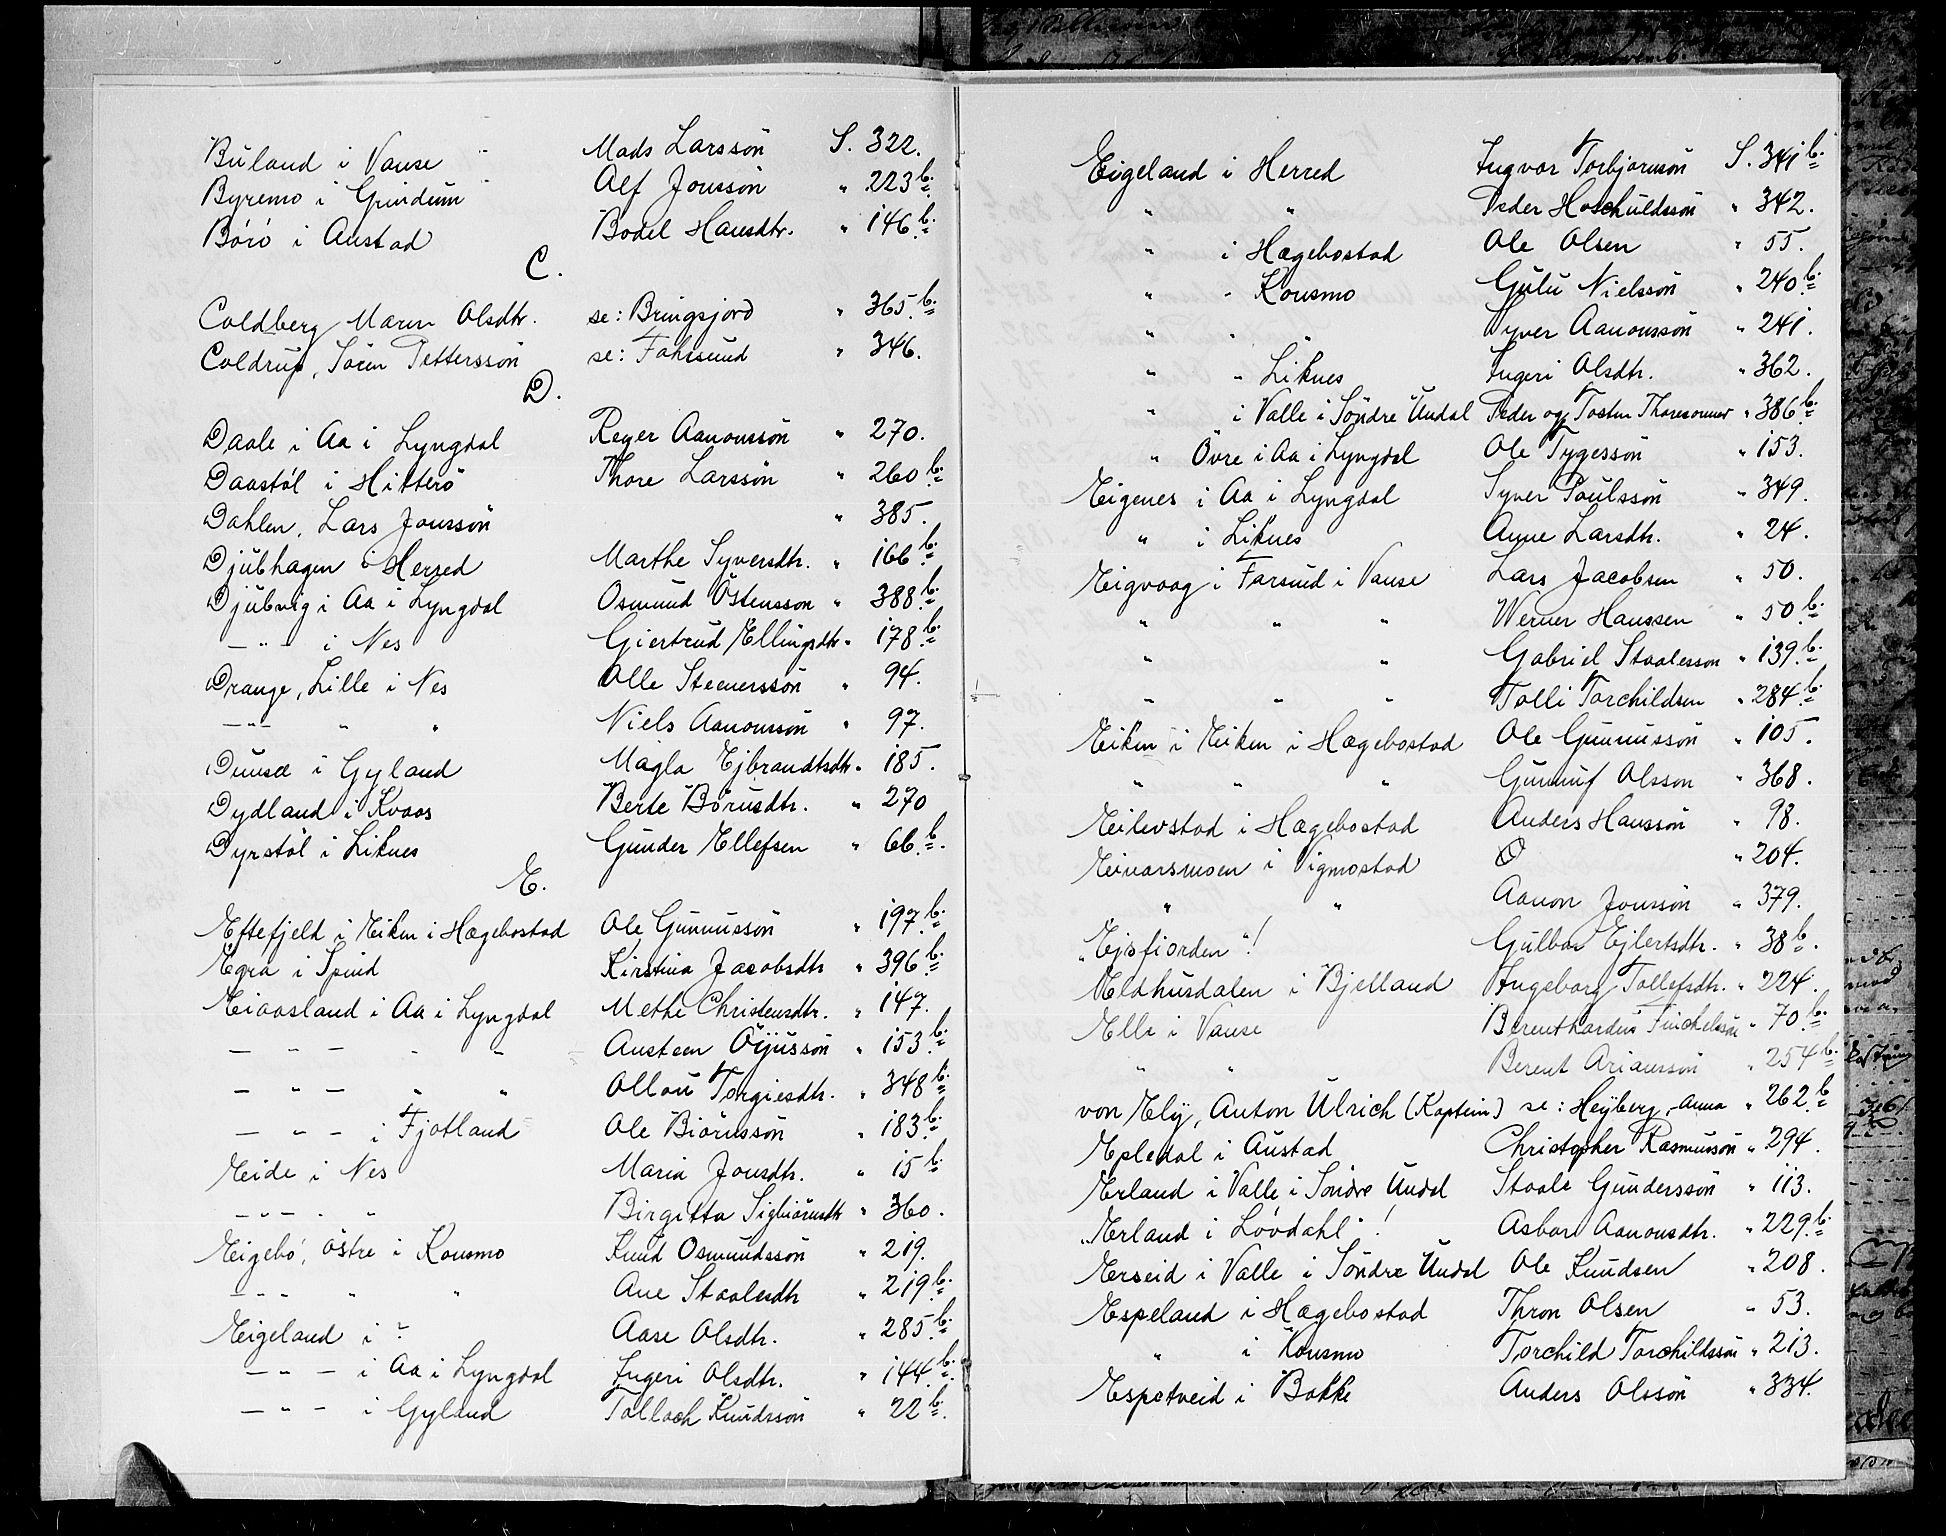 Buland i Vanse Mads Larssön S. 322.
Byremo i Grindum Alf Jonssön " 223 b.
Börö i Austad Bodel Hansdtr. " 146 b.
C.
Coldberg, Maren Olsdtr. se: Bringsjord " 365 b.
Coldrup, Sören Pettersson se: Fahrsund " 346.
D.
Daale i Aa i Lyngdal Reyer Aanonssön " 270.
Daastöl i Hitterö Thore Larssön " 260 b.
Dahlen, Lars Jonssön " 385.
Djubhagen i Herred Marthe Syversdtr. " 166 b.
Djubvig i Aa i Lyngdal Osmund Östensson " 388 b.
— " — i Nes Giertrud Ellingsdtr " 178 b.
Drange, Lille i Nes Olle Steenerssön " 94.
— " — " " Niels Aanonssön " 97.
Dunsæ i Gyland Magla Ejbrandtsdtr " 185.
Dydland i Kvaas Berte Börusdtr. " 270
Dyrstöl i Liknes Gunder Ellefsen " 66 b.
E.
Eftefjeld i Eiken i Hægebostad Ole Gunnussön " 197 b.
Egra i Spind Kirstina Jacobsdtr " 396 b.
Eiaasland i Aa i Lyngdal Methe Christensdtr. " 147.
— " — " " Austeen Öÿussön " 153 b.
— " — " " Allou Torgiesdtr. " 348 b.
— " — i Fjotland Ole Biörnssön " 183 b.
Eide i Nes Maria Jonsdtr. " 15 b.
— " — " " Birgitta Sigbiörnsdtr " 360.
Eigebö, östre i Konsmo Knud Osmundssön " 219.
— " — " " Ane Staalesdtr " 219 b.
Eigeland i ? Aase Olsdtr. " 285 b.
— " — i Aa i Lyngdal Ingeri Olsdtr. " 144 b.
— " — i Gyland Tallach Knudssön " 22 b.
Eigeland i Herred Ingvar Torbjörnsön S. 341 b.
" " Peder Hoschuldssön " 342.
" i Hægebostad Ole Olsen " 55.
" " Konsmo Gulu Nielssön " 240 b.
" " Syver Aanonssön " 241.
" " Liknes Ingeri Olsdtr. " 362.
" i Valle i Söndre Undal Peder og Tosten Thoresønner " 386 b.
" Övre i Aa i Lyngdal Ole Tygessön " 153.
Eigenes i Aa i Lyngdal Syver Poulssön " 349.
" i Liknes Anne Larsdtr. " 24.
Eigvaag i Farsund i Vanse Lars Jacobsen " 50.
" " " Werner Hanssen " 50 b.
" " Gabriel Staalesson " 139 b.
" " " Tolli Torchildsen " 284 b.
Eiken i Eiken i Hægebostad Ole Gunnussön " 105.
" " " Gunnuf Olsson " 368.
Eilevstad i Hægebostad Anders Hanssön " 98.
Einarsmoen i Vigmostad O " 204.
" " Aanon Jonssön " 379.
"Ejsfiorden"! Gulbor Ejlertsdtr. " 38 b.
Eldhusdalen i Bjelland Ingeborg Tollefsdtr. " 224.
Elle i Vanse Berenthardus Finckelssön " 70 b.
" " Berent Arianssön " 254 b.
von Elÿ, Anton Ulrich (Kaptein) se: Heÿberg, Anna " 262 b
Epledal i Austad Christopher Rasmusson " 294.
Erland i Valle i Söndre Undal Staale Gunderssön " 113.
"Erland i Lövdahl"! Asbor Aanonsdtr. " 229 b.
Erseid i Valle i Söndre Undal Ole Knudsen " 208.
Espeland i Hægebostad Thron Olsen " 53.
" i Konsmo Torchild Torchildssön " 213.
Espetveid i Bakke Anders Olssön " 334.